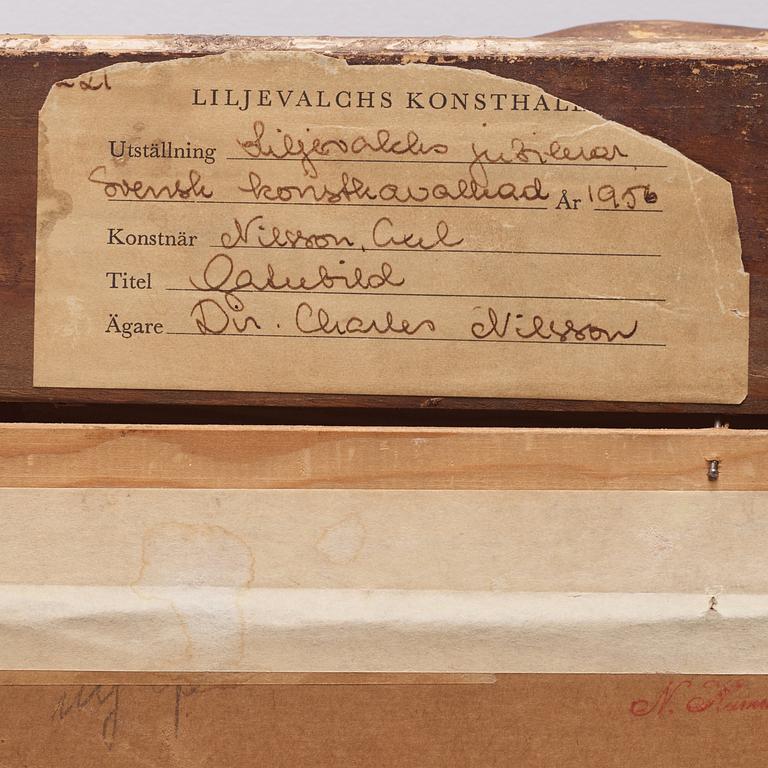 LILJEVALCHS KONSTHALL
Utställning Liljevalchs jubilerar
Svensk konstkavalkad År 1956
Konstnär Nilsson, Axel
Titel Gatubild
Ägare Dir. Charles Nilsson
N.